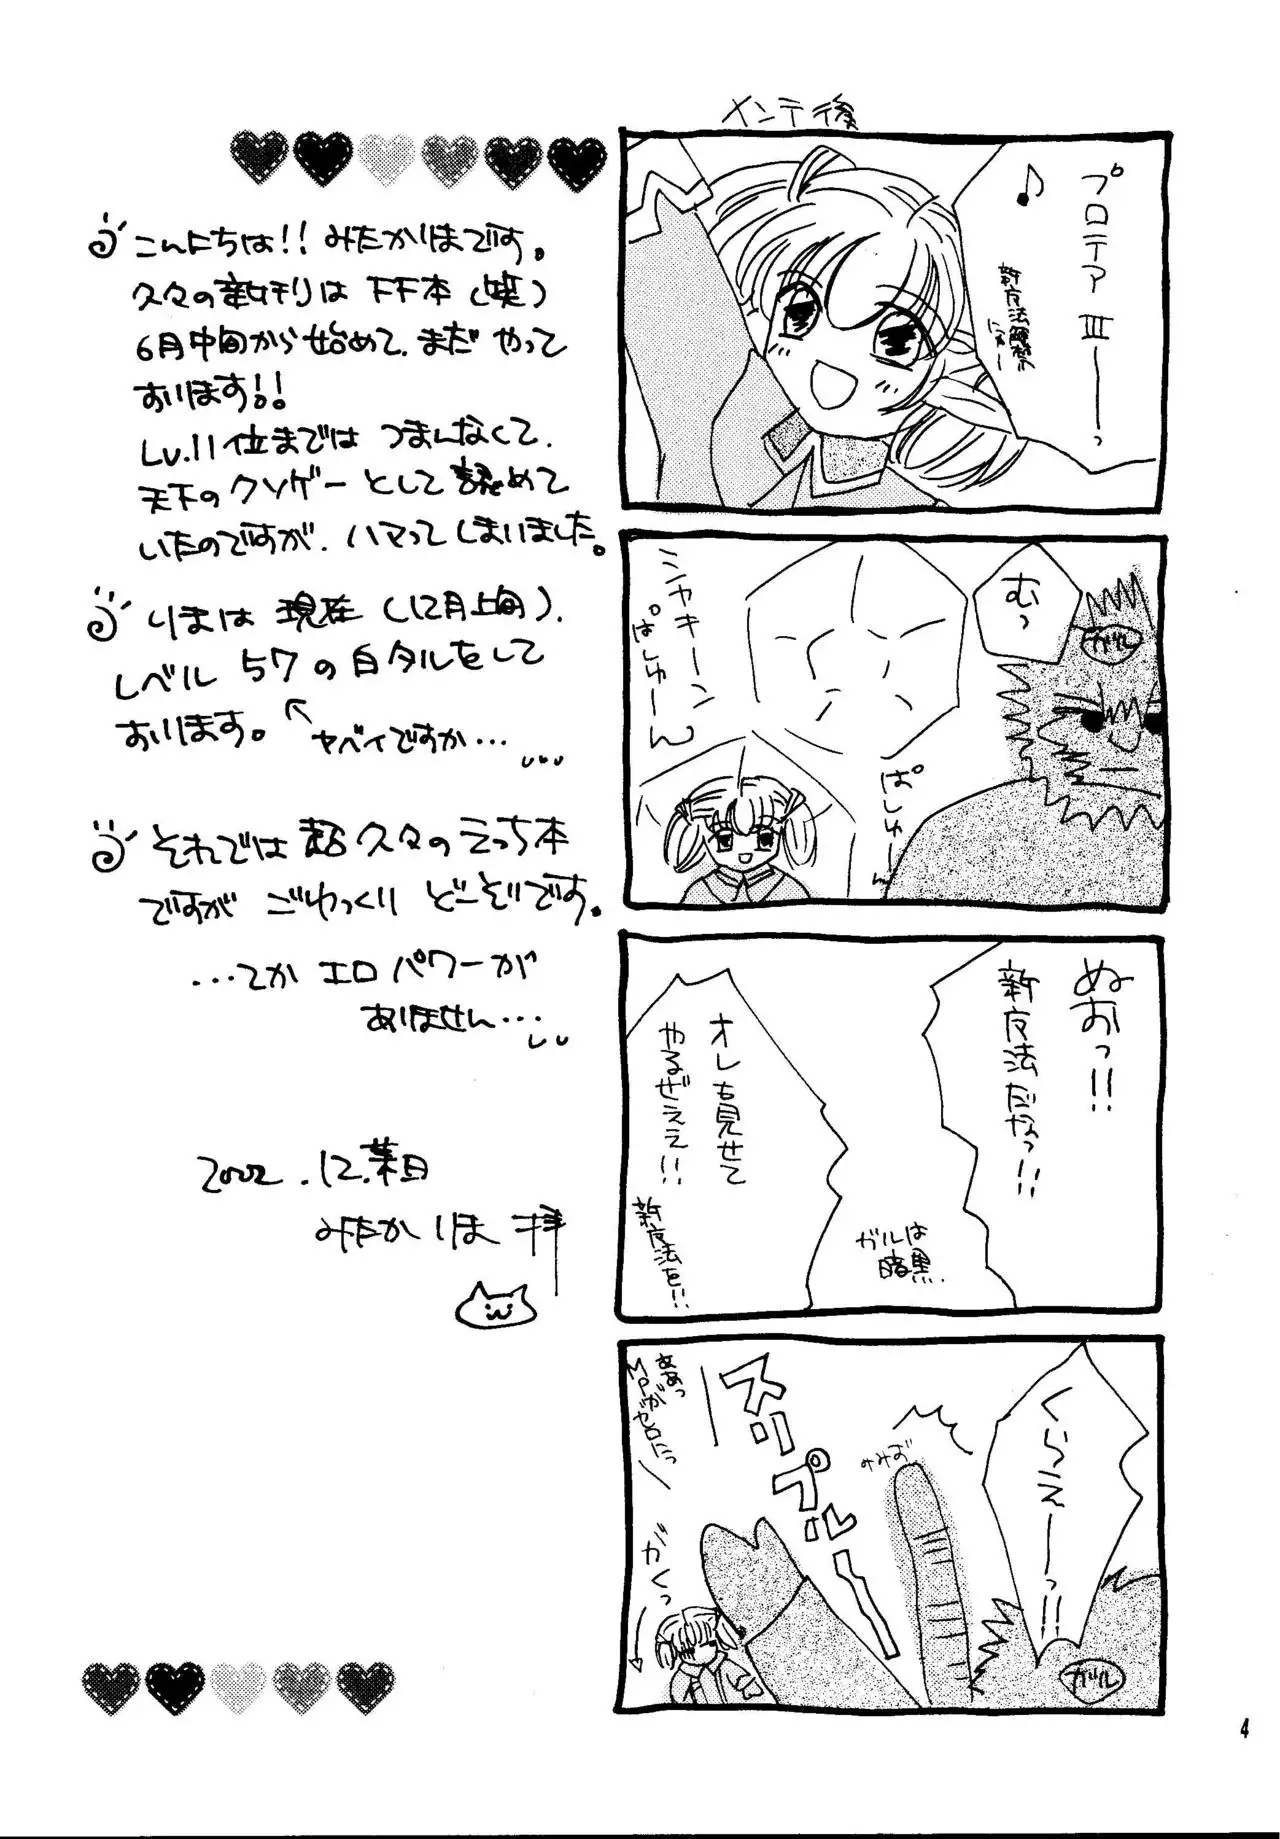 こんにちは!! みたかりほです。
久々の新刊は FF本(笑)
6月中旬から始めて、まだ やって
おります!!
Lv.11位までは つまんなくて、
天下のクソゲー として 認めて
いたのですが、ハマって しまいました。
りほは 現在 (12月上旬)、
レベル 57 の 白タルをして
おります。
ヤバイですか…
それでは 超久々の えっち本
ですが ごゆっくり どーぞです。
…てか エロ パワーが
ありません…
2002.12.某日
みたか りほ 拝
メンテ後
プロテア Ⅲーっ
♪
新魔法解禁
にっきー
むっ
ガル
シャキーン
ぱしゅーん
ぱしゅーん
ぬおっ!!
新魔法だなっ!!
オレも見せて
やるぜぇぇ!!
新魔法を!!
ガルは
暗黒
くらえーっ!!
みみお
スリプルー
ああっ
MPが
ゼロにっ
がくっ
ガル
4